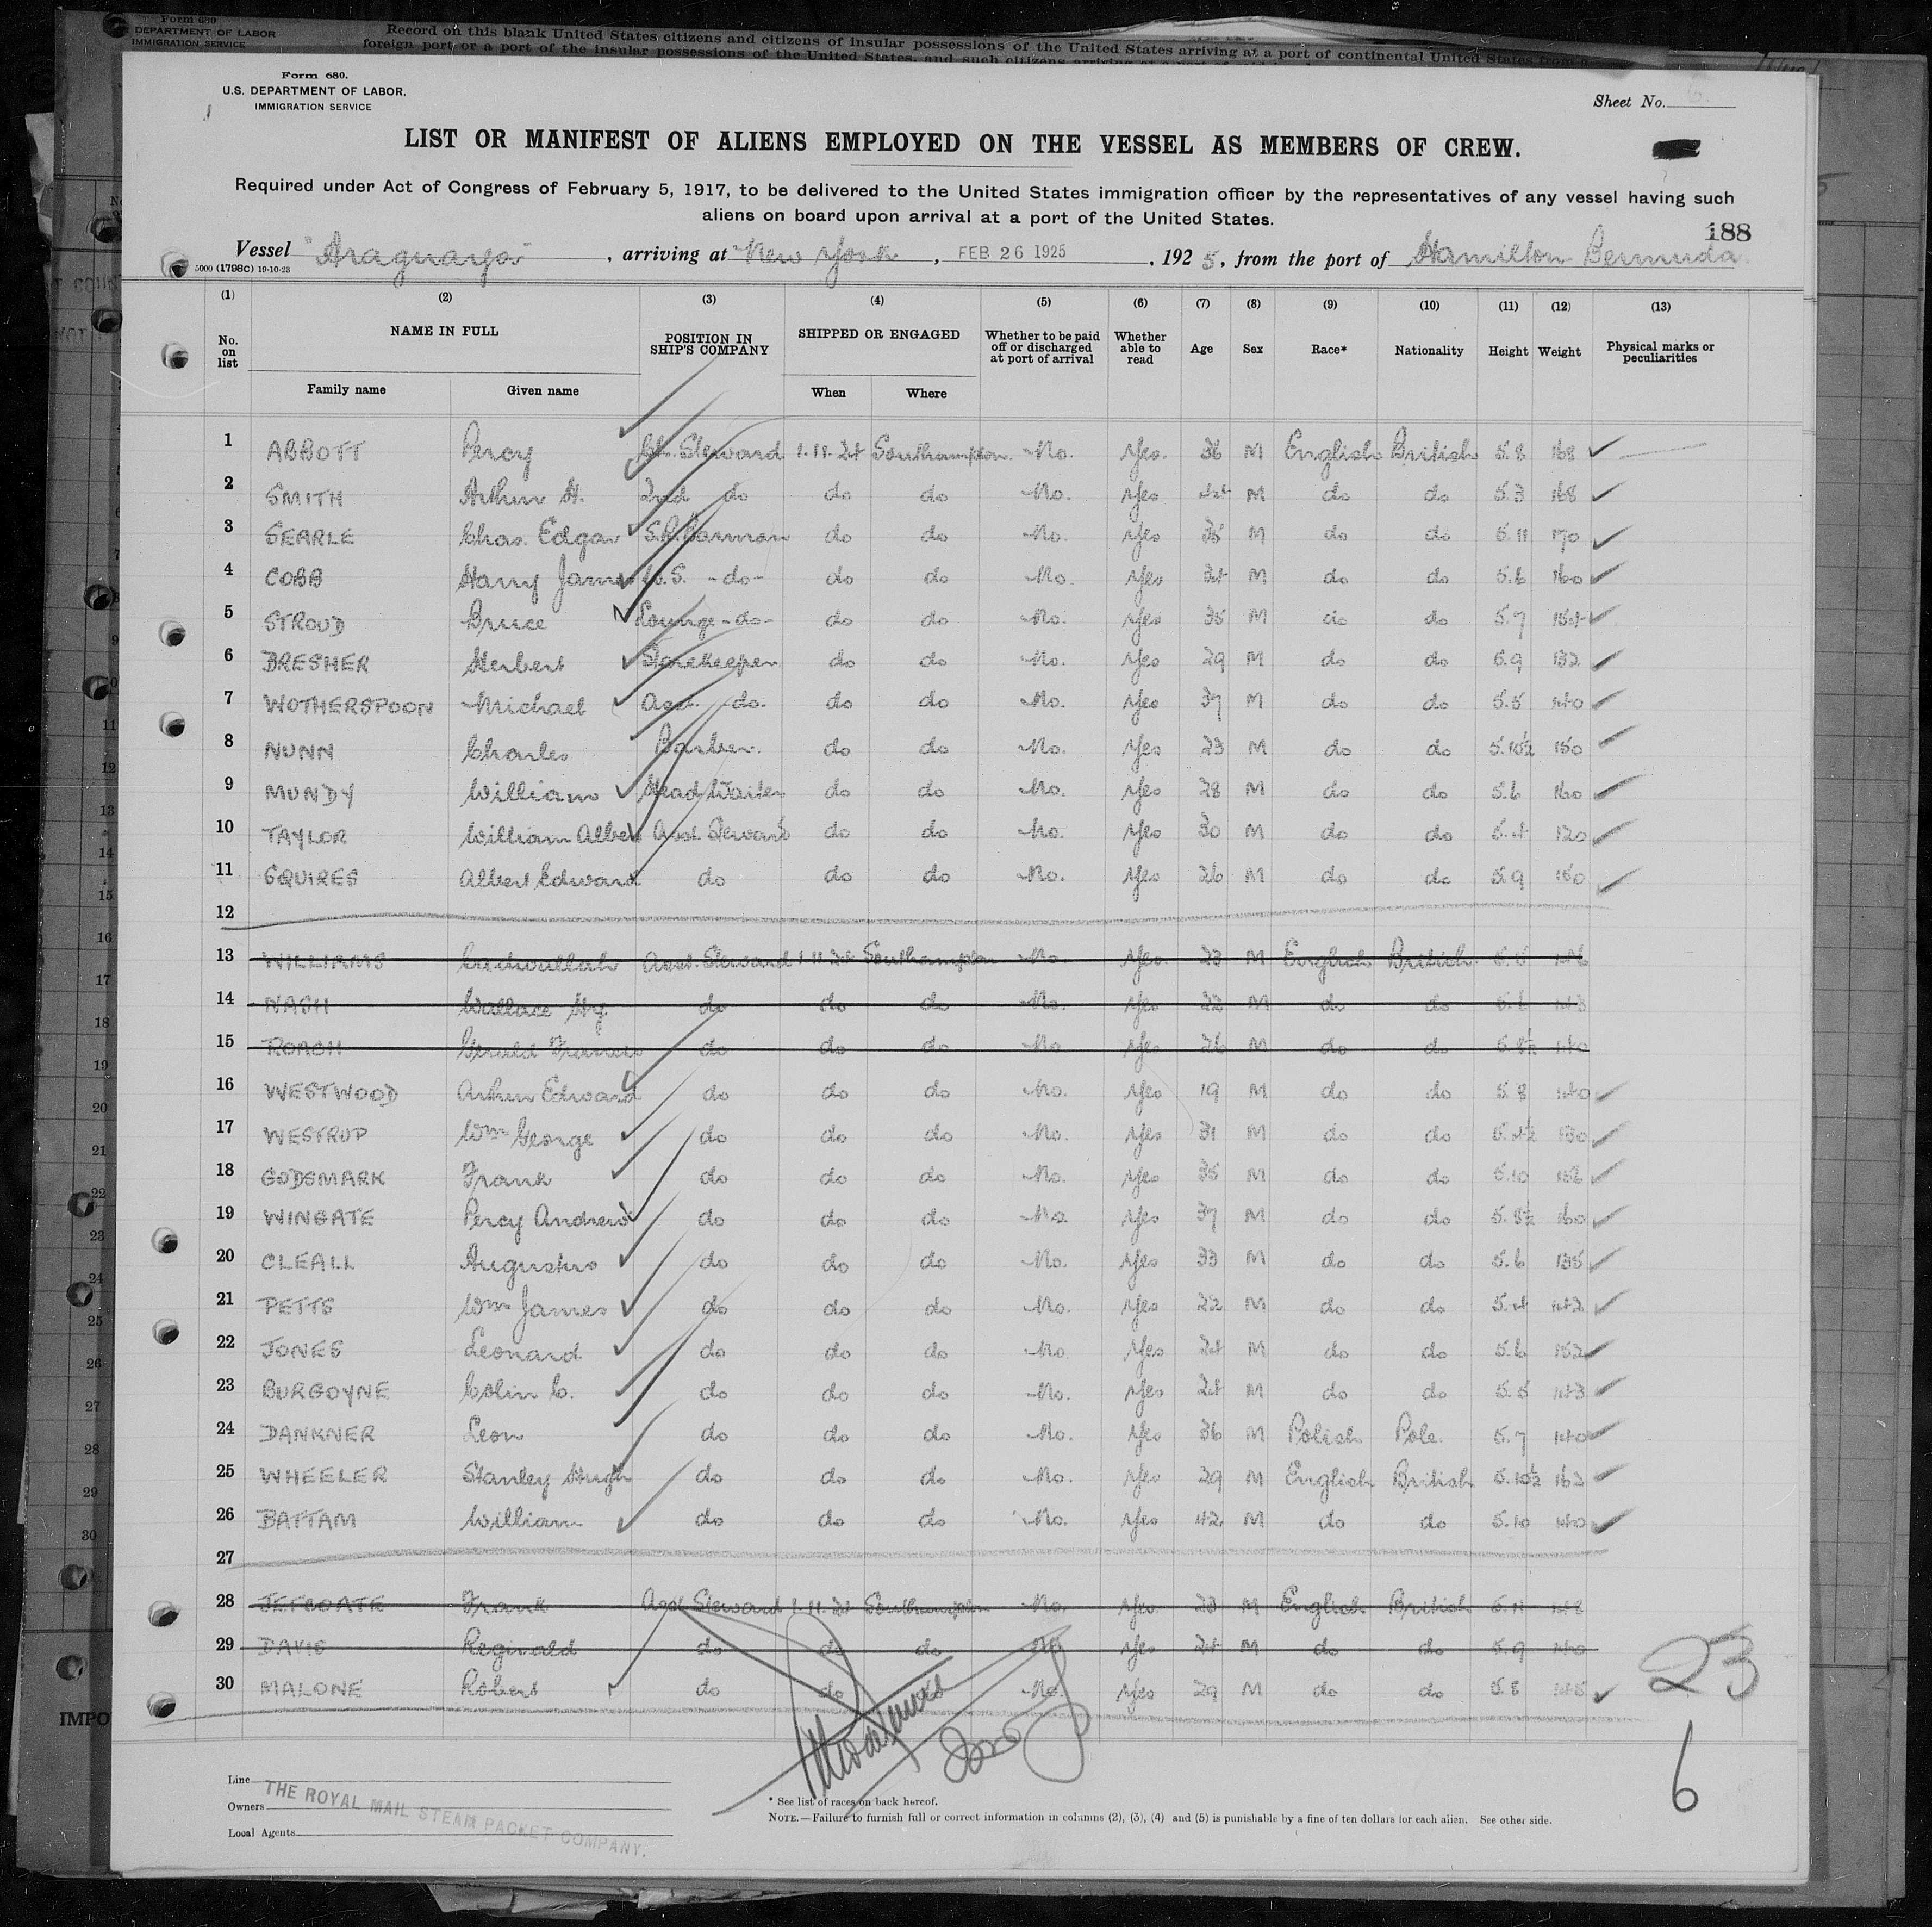 Form 680
DEPARTMENT OF LABOR
IMMIGRATION SERVICE
Record on this blank United States citizens and citizens of insular possessions of the United States arriving at a port of continental United States from a
foreign port or a port of the insular possessions of the United States, and such citizens arriving at a port of
Form 680.
U.S. DEPARTMENT OF LABOR.
IMMIGRATION SERVICE
Sheet No.
LIST OR MANIFEST OF ALIENS EMPLOYED ON THE VESSEL AS MEMBERS OF CREW.
Required under Act of Congress of February 5, 1917, to be delivered to the United States immigration officer by the representatives of any vessel having such
aliens on board upon arrival at a port of the United States.
188
Vessel "Araguaya", arriving at New York, FEB 26 1925, 1925, from the port of Hamilton Bermuda
5000 (1798c) 19-10-23
(1) (2) (3) (4) (5) (6) (7) (8) (9) (10) (11) (12) (13)
No. on list NAME IN FULL POSITION IN SHIP'S COMPANY SHIPPED OR ENGAGED Whether to be paid off or discharged at port of arrival Whether able to read Age Sex Race* Nationality Height Weight Physical marks or peculiarities
Family name Given name When Where
1 ABBOTT Percy Ch. Steward 1.11.24 Southampton No. Yes. 36 M English British 5.8 168
2 SMITH Arthur H. 2nd do do do No. Yes 44 M do do 5.3 168
3 SEARLE Chas. Edgar S.R. Barman do do No. Yes 35 M do do 5.11 170
4 COBB Harry James -do- do do No. Yes 34 M do do 5.6 160
5 STROUD Bruce Lounge -do- do do No. Yes 35 M do do 5.7 154
6 BRESHER Herbert Storekeeper do do No. Yes 29 M do do 5.9 132
7 WOTHERSPOON Michael Asst. do. do do No. Yes 37 M do do 5.5 140
8 NUNN Charles Barber. do do No. Yes 23 M do do 5.10½ 150
9 MUNDY William Head Waiter do do No. Yes 28 M do do 5.6 160
10 TAYLOR William Albert Asst. Steward do do No. Yes 30 M do do 5.4 120
11 SQUIRES Albert Edward do do do No. Yes 26 M do do 5.9 150
12
13 WILLIAMS Cadwallah Asst. Steward 1.11.24 Southampton No. Yes. 23 M English British 5.5
14 NASH Wallace Hy. do do do No. Yes 22 M do do 5.6 143
15 ROACH Gerald Francis do do do No Yes 26 M do do 5.8½ 140
16 WESTWOOD Arthur Edward do do do No. Yes 19 M do do 5.8 140
17 WESTRUP Wm George do do do No. Yes 31 M do do 5.4½ 130
18 GODSMARK Frank do do do No. Yes 35 M do do 5.10
19 WINGATE Percy Andrew do do do No. Yes 37 M do do 5.8½ 160
20 CLEALL Augustus do do do No. Yes 33 M do do 5.6 135
21 PETTS Wm James do do do No. Yes 22 M do do 5.4 142
22 JONES Leonard do do do No Yes 24 M do do 5.6 152
23 BURGOYNE Colin C. do do do No. Yes 24 M do do 5.5 143
24 DANKNER Leon do do do No. Yes 36 M Polish Pole. 5.7 140
25 WHEELER Stanley Hugh do do do No. Yes 29 M English British 5.10½ 163
26 BATTAM William do do do No. Yes 42 M do do 5.10 140
27
28 JEFCOATE Frank Asst. Steward 1.11.24 Southampton No. Yes. 23 M English British 5.11 148
29 DAVIS Reginald do do do No Yes 24 M do do 5.9 140
30 MALONE Robert do do do No. Yes 29 M do do 5.8 145
23
6
Line
Owners THE ROYAL MAIL STEAM PACKET COMPANY.
Local Agents
* See list of races on back hereof.
NOTE.—Failure to furnish full or correct information in columns (2), (3), (4) and (5) is punishable by a fine of ten dollars for each alien. See other side.
IMPO